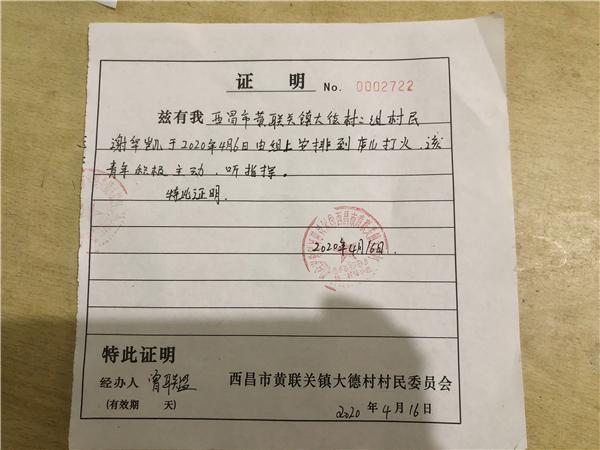 证 明 No. 0002722
兹有我 西昌市黄联关镇大德村二组村民
谢华凯于2020年4月6日由组上安排到 打火,该
青年积极主动,听指挥。
特此证明
2020年4月16日.
特此证明
经办人 曾联盟
西昌市黄联关镇大德村村民委员会
(有效期 天)
2020 年 4 月 16 日